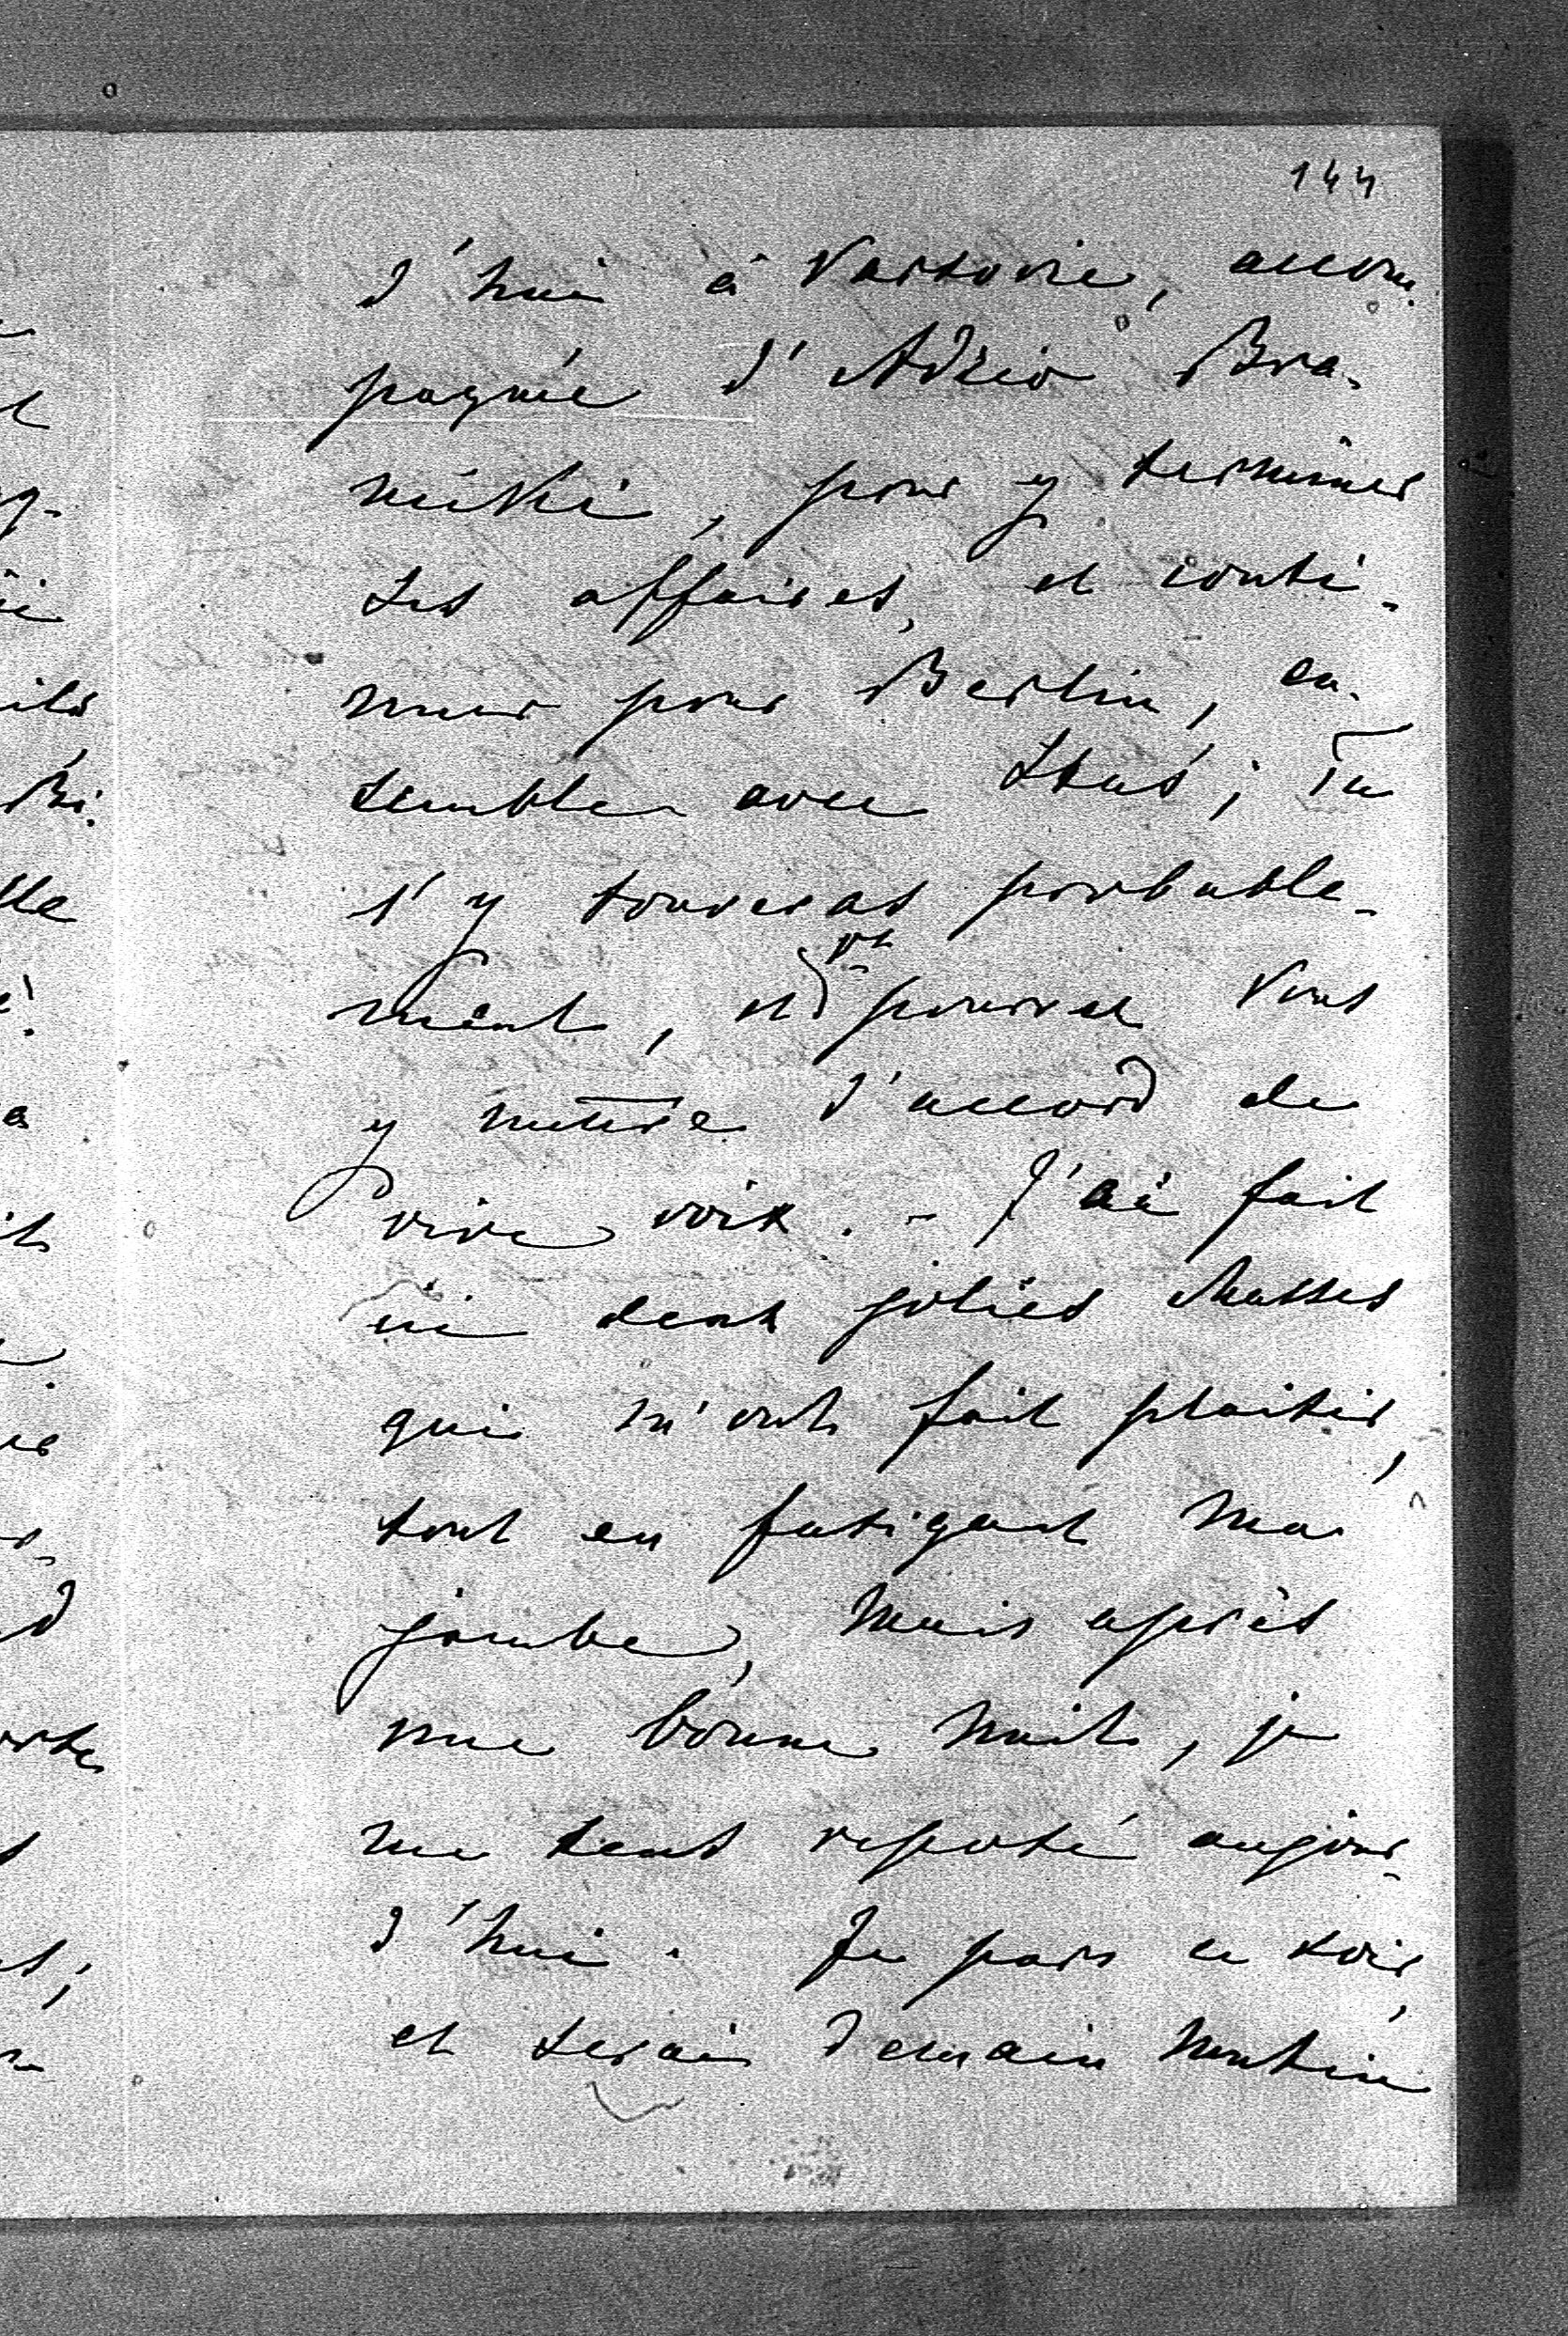 144
d'hui à Varsovie, accom-
pagnée d'Adzio Bra-
nicki, pour y terminer
ses affaires, et conti-
nuer pour Berlin, en-
semble avec Stas'; Tu
s'y trouveras probable-
ment, et pourrez vous
y mettre d'accord de
vive voix. - J'ai fait
ici deux jolies chasses
qui m'ont fait plaisir,
tout en fatigant ma
jambe, mais après
une bonne nuit, je
me sens reposé aujour-
d'hui. Je pars ce soir,
et serai demain matin